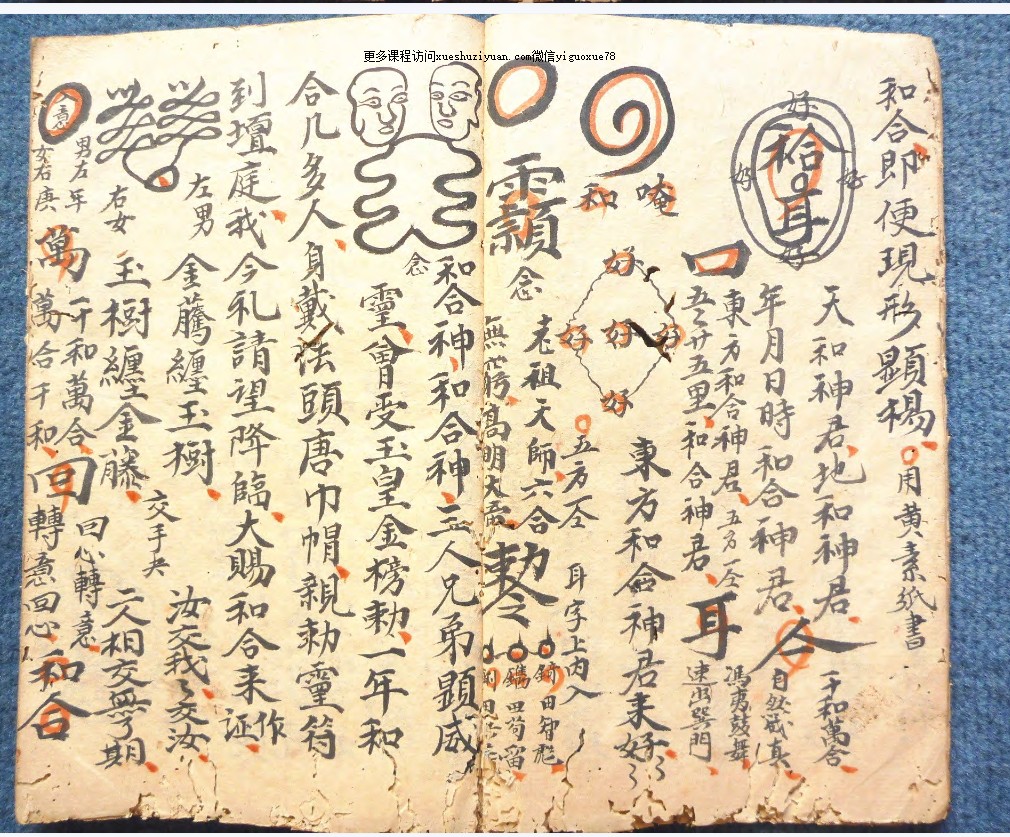 更多课程访问xueshuziyuan.com微信yiguoxue78
和合即便現形顕楊
用黄素紙書
好
好
好
好
天和神君地和神君
千和萬合
年月日時和合神君
合
自然
口
東方和合神君
五方仝
馮夷鼓舞
五之廿五里和合神君
耳
唵
和
好
好
好
好
好
東方和合神君来好
五方仝
耳字上内入
念
老祖天師六合
高明大帝
勅令
和合神和合神三人兄弟顕威
念
靈曾受玉皇金榜勅一年和
合几多人身戴法頭唐巾帽親勅靈符
到壇庭我今礼請望降臨大賜和合来
作证
左男
金騰纏玉樹
交手夬
汝交我我交汝
右女
玉樹纏金藤
二人相交無了期
意
男左年
女右庚
萬
千和萬合
萬合千和
回
回心轉意
轉意回心
和合